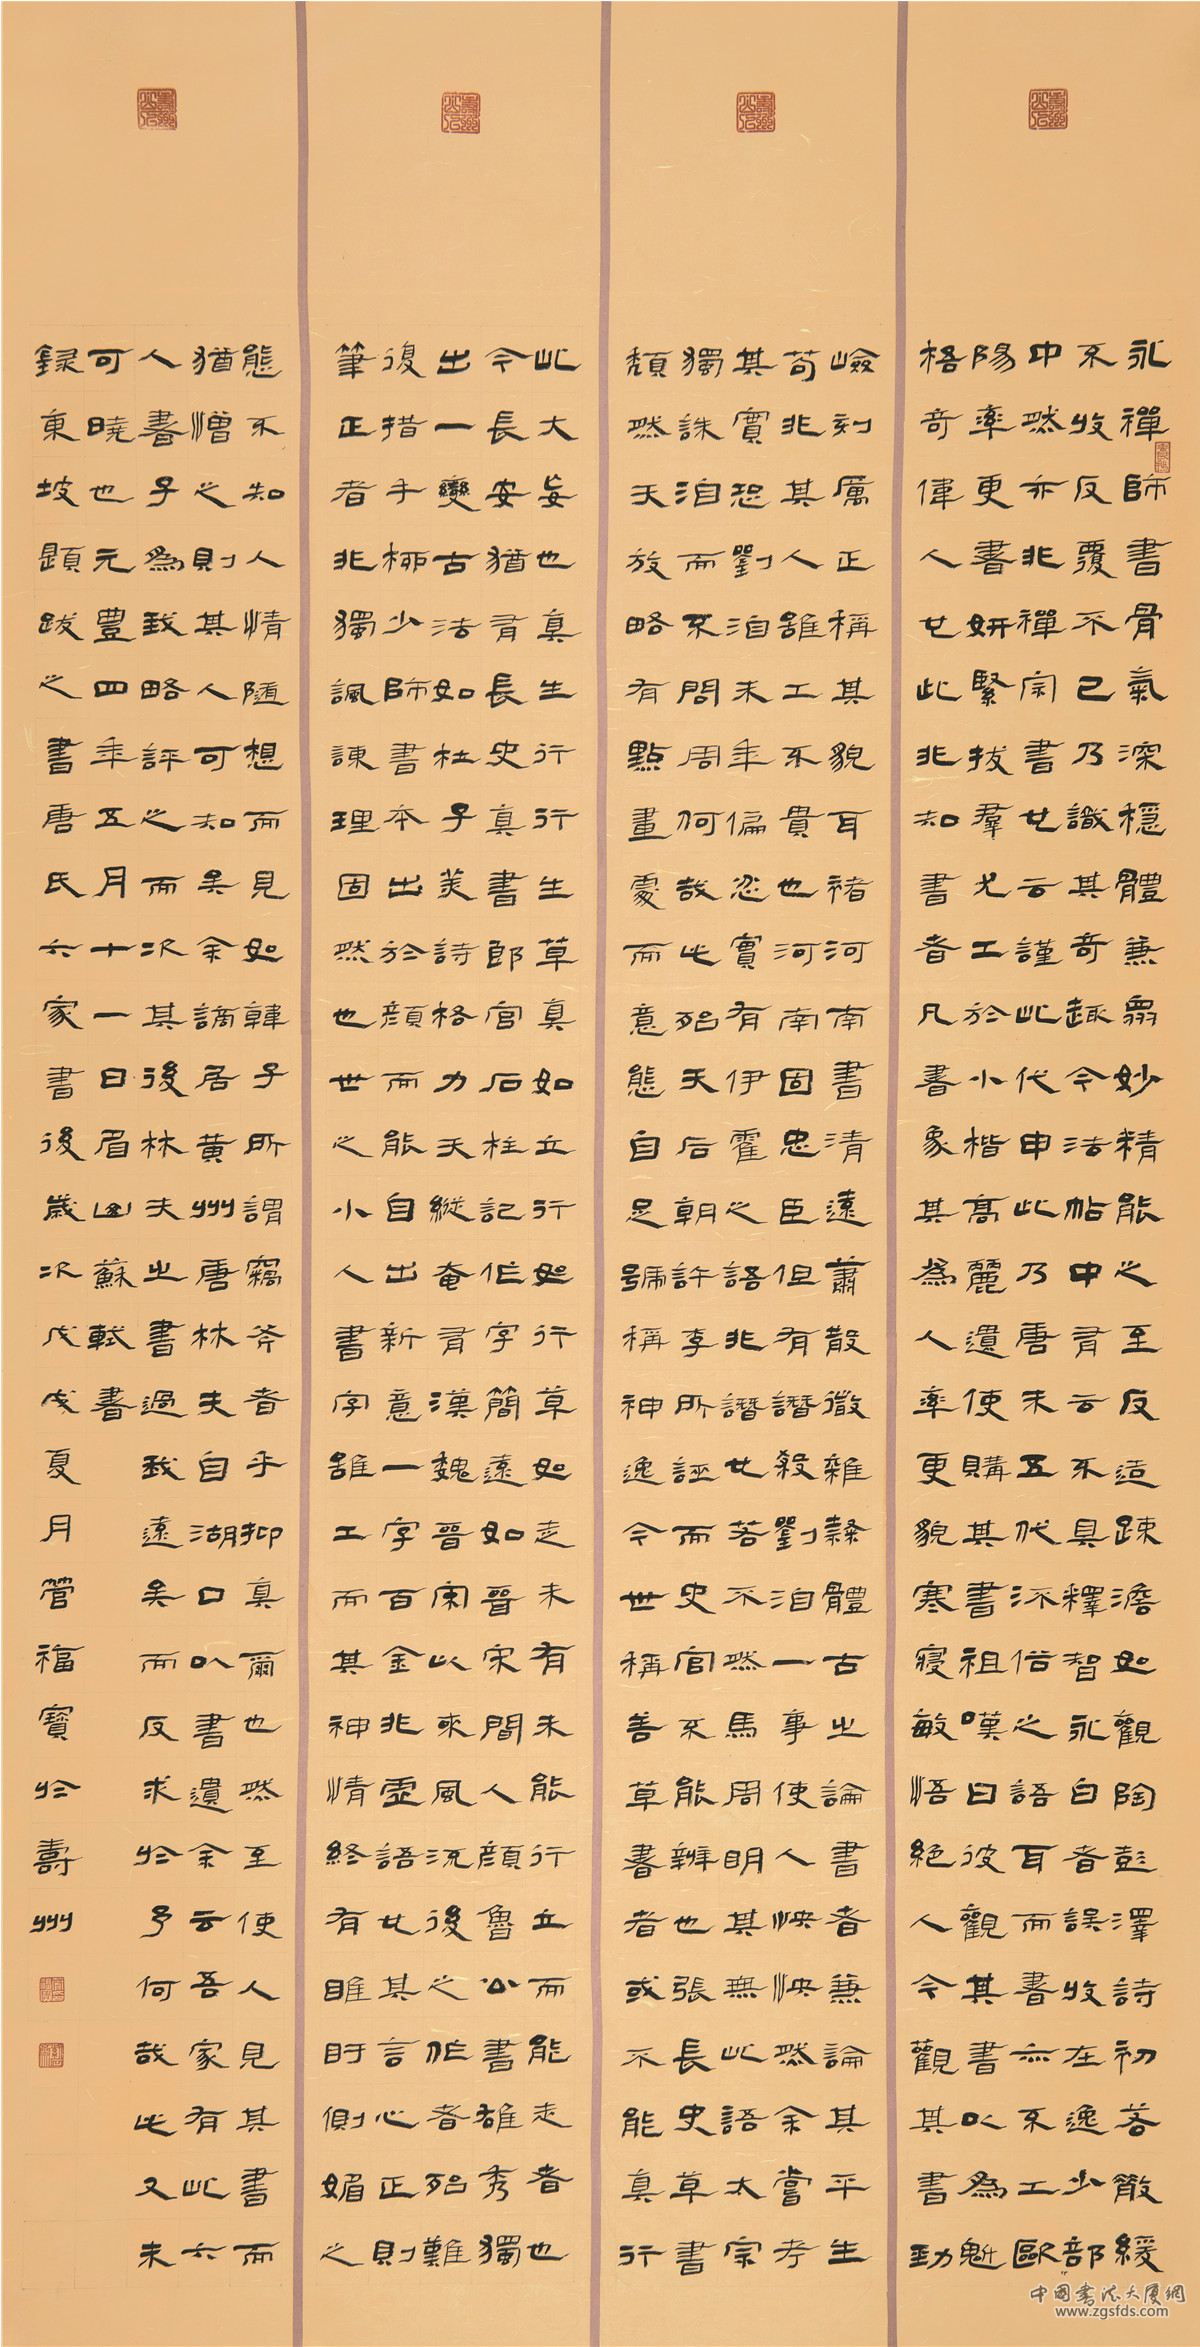 永禪師書骨氣深穩體兼眾妙精能之至反造疎澹如觀陶彭澤詩初若散緩
不收反覆不已乃識其奇趣今法帖中有云不具釋智永白者誤收在逸少部
中然亦非禪宗書也云謹此代申此乃唐末五代流俗之語耳而書亦不工歐
陽率更書妍緊拔羣尤工於小楷高麗遣使購其書祖嘆曰彼觀其書以為魁
格奇偉人也此非知書者凡書象其為人率更貌寒寢敏悟絕人今觀其書勁
嶮刻厲正稱其貌耳褚河南書清遠蕭散微雜隸體古之論書者兼論其平生
苟非其人雖工不貴也河南固忠臣但有譖殺劉洎一事使人怏怏然余嘗考
其實恐劉洎末年偏忿實有伊霍之語非譖也若不然馬周明其無此語太宗
獨誅洎而不問周何哉此殆天后朝許李所誣而史官不能辨也張長史草書
頹然天放略有點畫處而意態自足號稱神逸今世稱善草書者或不能真行
此大妄也真生行行生草真如立行如行草如走未有未能行立而能走者也
今長安猶有長史真書郎官石柱記作字簡遠如晉宋間人顏魯公書雄秀獨
出一變古法如杜子美詩格力天縱奄有漢魏晉宋以來風流後之作者殆難
復措手柳少師書本出於顏而能自出新意一字百金非虛語也其言心正則
筆正者非獨諷諫理固然也世之小人書字雖工而其神情終有睢盱側媚之
態不知人情隨想而見如韓子所謂竊斧者乎抑真爾也然至使人見其書而
猶憎之則其人可知矣余謫居黃州唐林夫自湖口以書遺余云吾家有此六
人書子為我略評之而次其後林夫之書過我遠矣而反求於予何哉此又未
可曉也元豐四年五月十一日眉山蘇軾書
錄東坡題跋之書唐氏六家書後歲次戊戌夏月管福寶於壽州
中国书法大厦網
www.zgsfds.com